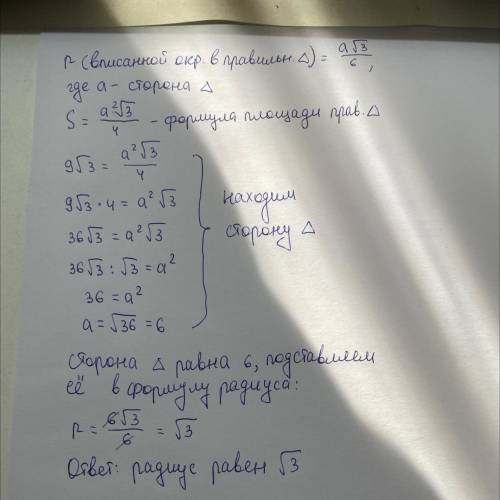 r (вписанной окр. в правильн. △) = a√3/6,
где a - сторона △
S = a²√3/4 - формула площади прав. △
9√3 = a²√3/4
9√3 • 4 = a²√3
36√3 = a²√3
36√3 : √3 = a²
36 = a²
a = √36 = 6
находим
сторону △
сторона △ равна 6, подставляем
её в формулу радиуса:
r = 6√3/6 = √3
Ответ: радиус равен √3